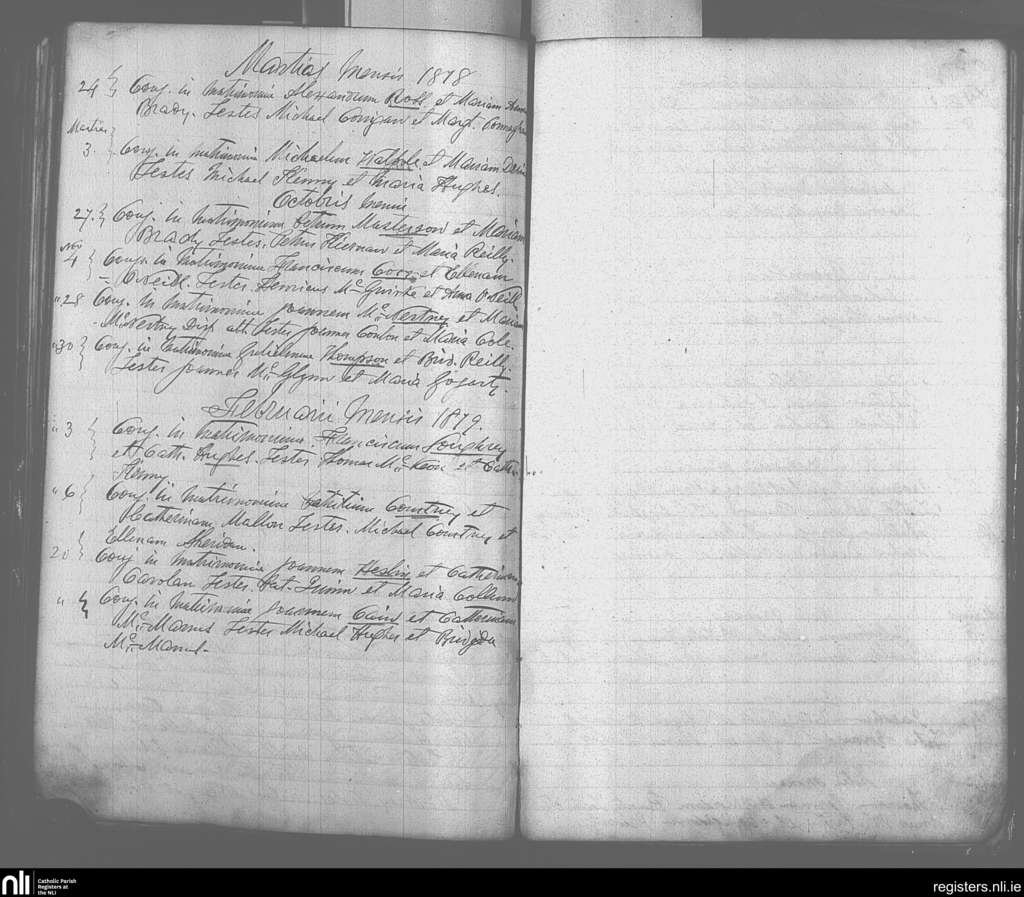 Martias Mensis 1878
24 } Conj. in Matrimonium Alexandrum Ross et Mariam
Brady. Testes Michael Corrigan et Margt.
Martias
3. } Conj. in Matrimonium Michaelem Walpole et Mariam
Testes Michael Kenny et Maria Hughes.
Octobris Mensis
27. } Conj. in Matrimonium Petrum Masterson et Mariam
Brady Testes. Petrus Kiernan et Maria Reilly.
Nov
4 { Conj. in Matrimonium Franciscum et Ellenam
O'Neill. Testes Henricus McGuirke et Anna O'Neill
" 28 Conj. in Matrimonium Joannem McNertney et Mariam
McNertney Testes Joannes Conlon et Maria Cole.
" 30 } Conj. in Matrimonium Gulielmum Thompson et Brid. Reilly.
Testes Joannes McGlynn et Maria Fogarty.
Februarii Mensis 1879.
" 3 { Conj. in Matrimonium Franciscum Loughrey
et Cath. Hughes. Testes Thomas McKeon et Cath.
Kenny.
" 6 { Conj. in Matrimonium Patritium Courtney et
Catherinam Mallon Testes. Michael Courtney et
Ellenam Sheridan.
20 { Conj in Matrimonium Joannem Heslin et Catherinam
Carolan Testes. Pat. Quinn et Maria Collum
" { Conj. in Matrimonium Joannem Cain et Catherinam
McManus Testes Michael Hughes et Bridgida
McManus.
nli
Catholic Parish
Registers at
the NLI
registers.nli.ie